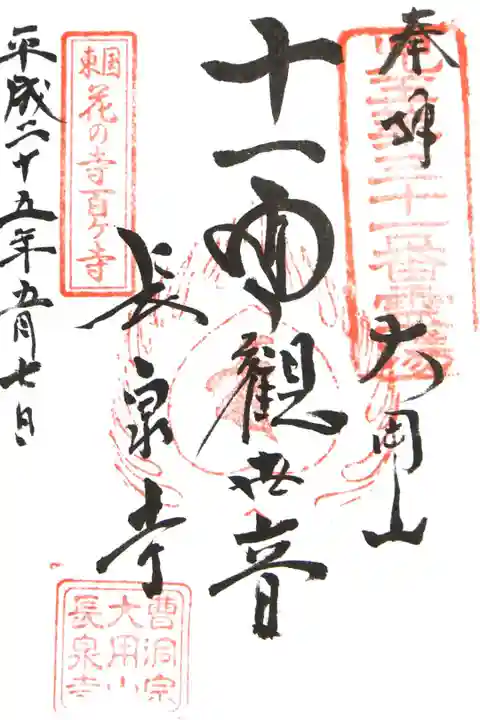 奉拝
児玉
三十一番霊場
大用山
十一面観世音
長泉寺
東国花の寺百ヶ寺
平成二十五年五月七日
曹洞宗
大用山
長泉寺